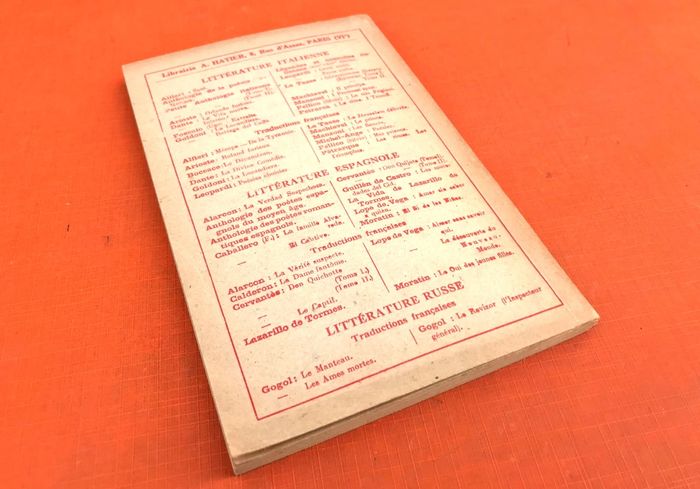 Librairie A. HATIER, 8, Rue d'Assas, PARIS (VIe)
LITTÉRATURE ITALIENNE
Alfieri :
Anthologie de la poésie
Petite Anthologie italienne
Arioste : Orlando furioso.
Dante : La Vita nuova.
Foscolo
Goldoni : La Locandiera.
Leopardi :
Le Tasse :
Machiavel : Il principe.
Manzoni : I promessi sposi.
Pellico
Pétrarca :
Traductions françaises
Alfieri : Mérope — De la Tyrannie.
Arioste : Roland furieux
Boccace : Le Décaméron.
Dante : La Divine Comédie.
Goldoni : La Locandiera.
Leopardi : Poésies choisies.
Le Tasse : La Jérusalem délivrée.
Machiavel : Le prince.
Manzoni : Les fiancés.
Michel-Ange : Poésies.
Pellico : Mes prisons.
Pétrarque :
Triomphes.
LITTÉRATURE ESPAGNOLE
Alarcon : La Verdad Sospechosa.
Anthologie des poètes espa-
gnols du moyen âge.
Anthologie des poètes roman-
tiques espagnols.
Caballero (F.) : La familia Alva-
reda.
El Cautivo.
Cervantès : Don Quijote
Guillén de Castro :
dades del Cid.
La Vida de Lazarillo de
Tormes.
Lope de Vega : Amar sin saber
a quién.
Moratin : El Sí de las Niñas.
Traductions françaises
Alarcon : La Vérité suspecte.
Calderon : La Dame fantôme.
Cervantès : Don Quichotte
(Tome I.)
(Tome II.)
— Le Captif.
Lazarillo de Tormes.
Lope de Vega : Aimer sans savoir
qui.
— La découverte du
Nouveau-
Monde.
Moratin : Le Oui des jeunes filles.
LITTÉRATURE RUSSE
Traductions françaises
Gogol : Le Manteau.
— Les Ames mortes.
Gogol : Le Revizor (l'Inspecteur
général).